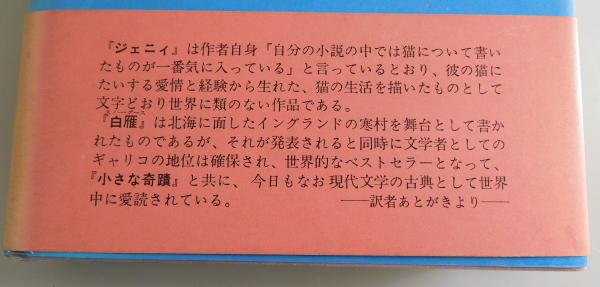 『ジェニィ』は作者自身「自分の小説の中では猫について書い
たものが一番気に入っている」と言っているとおり、彼の猫に
たいする愛情と経験から生れた、猫の生活を描いたものとして
文字どおり世界に類のない作品である。
『白雁』は北海に面したイングランドの寒村を舞台として書か
れたものであるが、それが発表されると同時に文学者としての
ギャリコの地位は確保され、世界的なベストセラーとなって、
『小さな奇蹟』と共に、今日もなお現代文学の古典として世界
中に愛読されている。 ——訳者あとがきより——